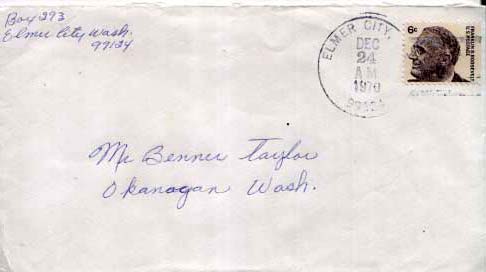 Box 293
Elmer City Wash.
99124
ELMER CITY,
DEC
24
AM
1970
99124
6c
FRANKLIN D. ROOSEVELT
U.S. POSTAGE
Mr Benner Taylor
Okanogan Wash.